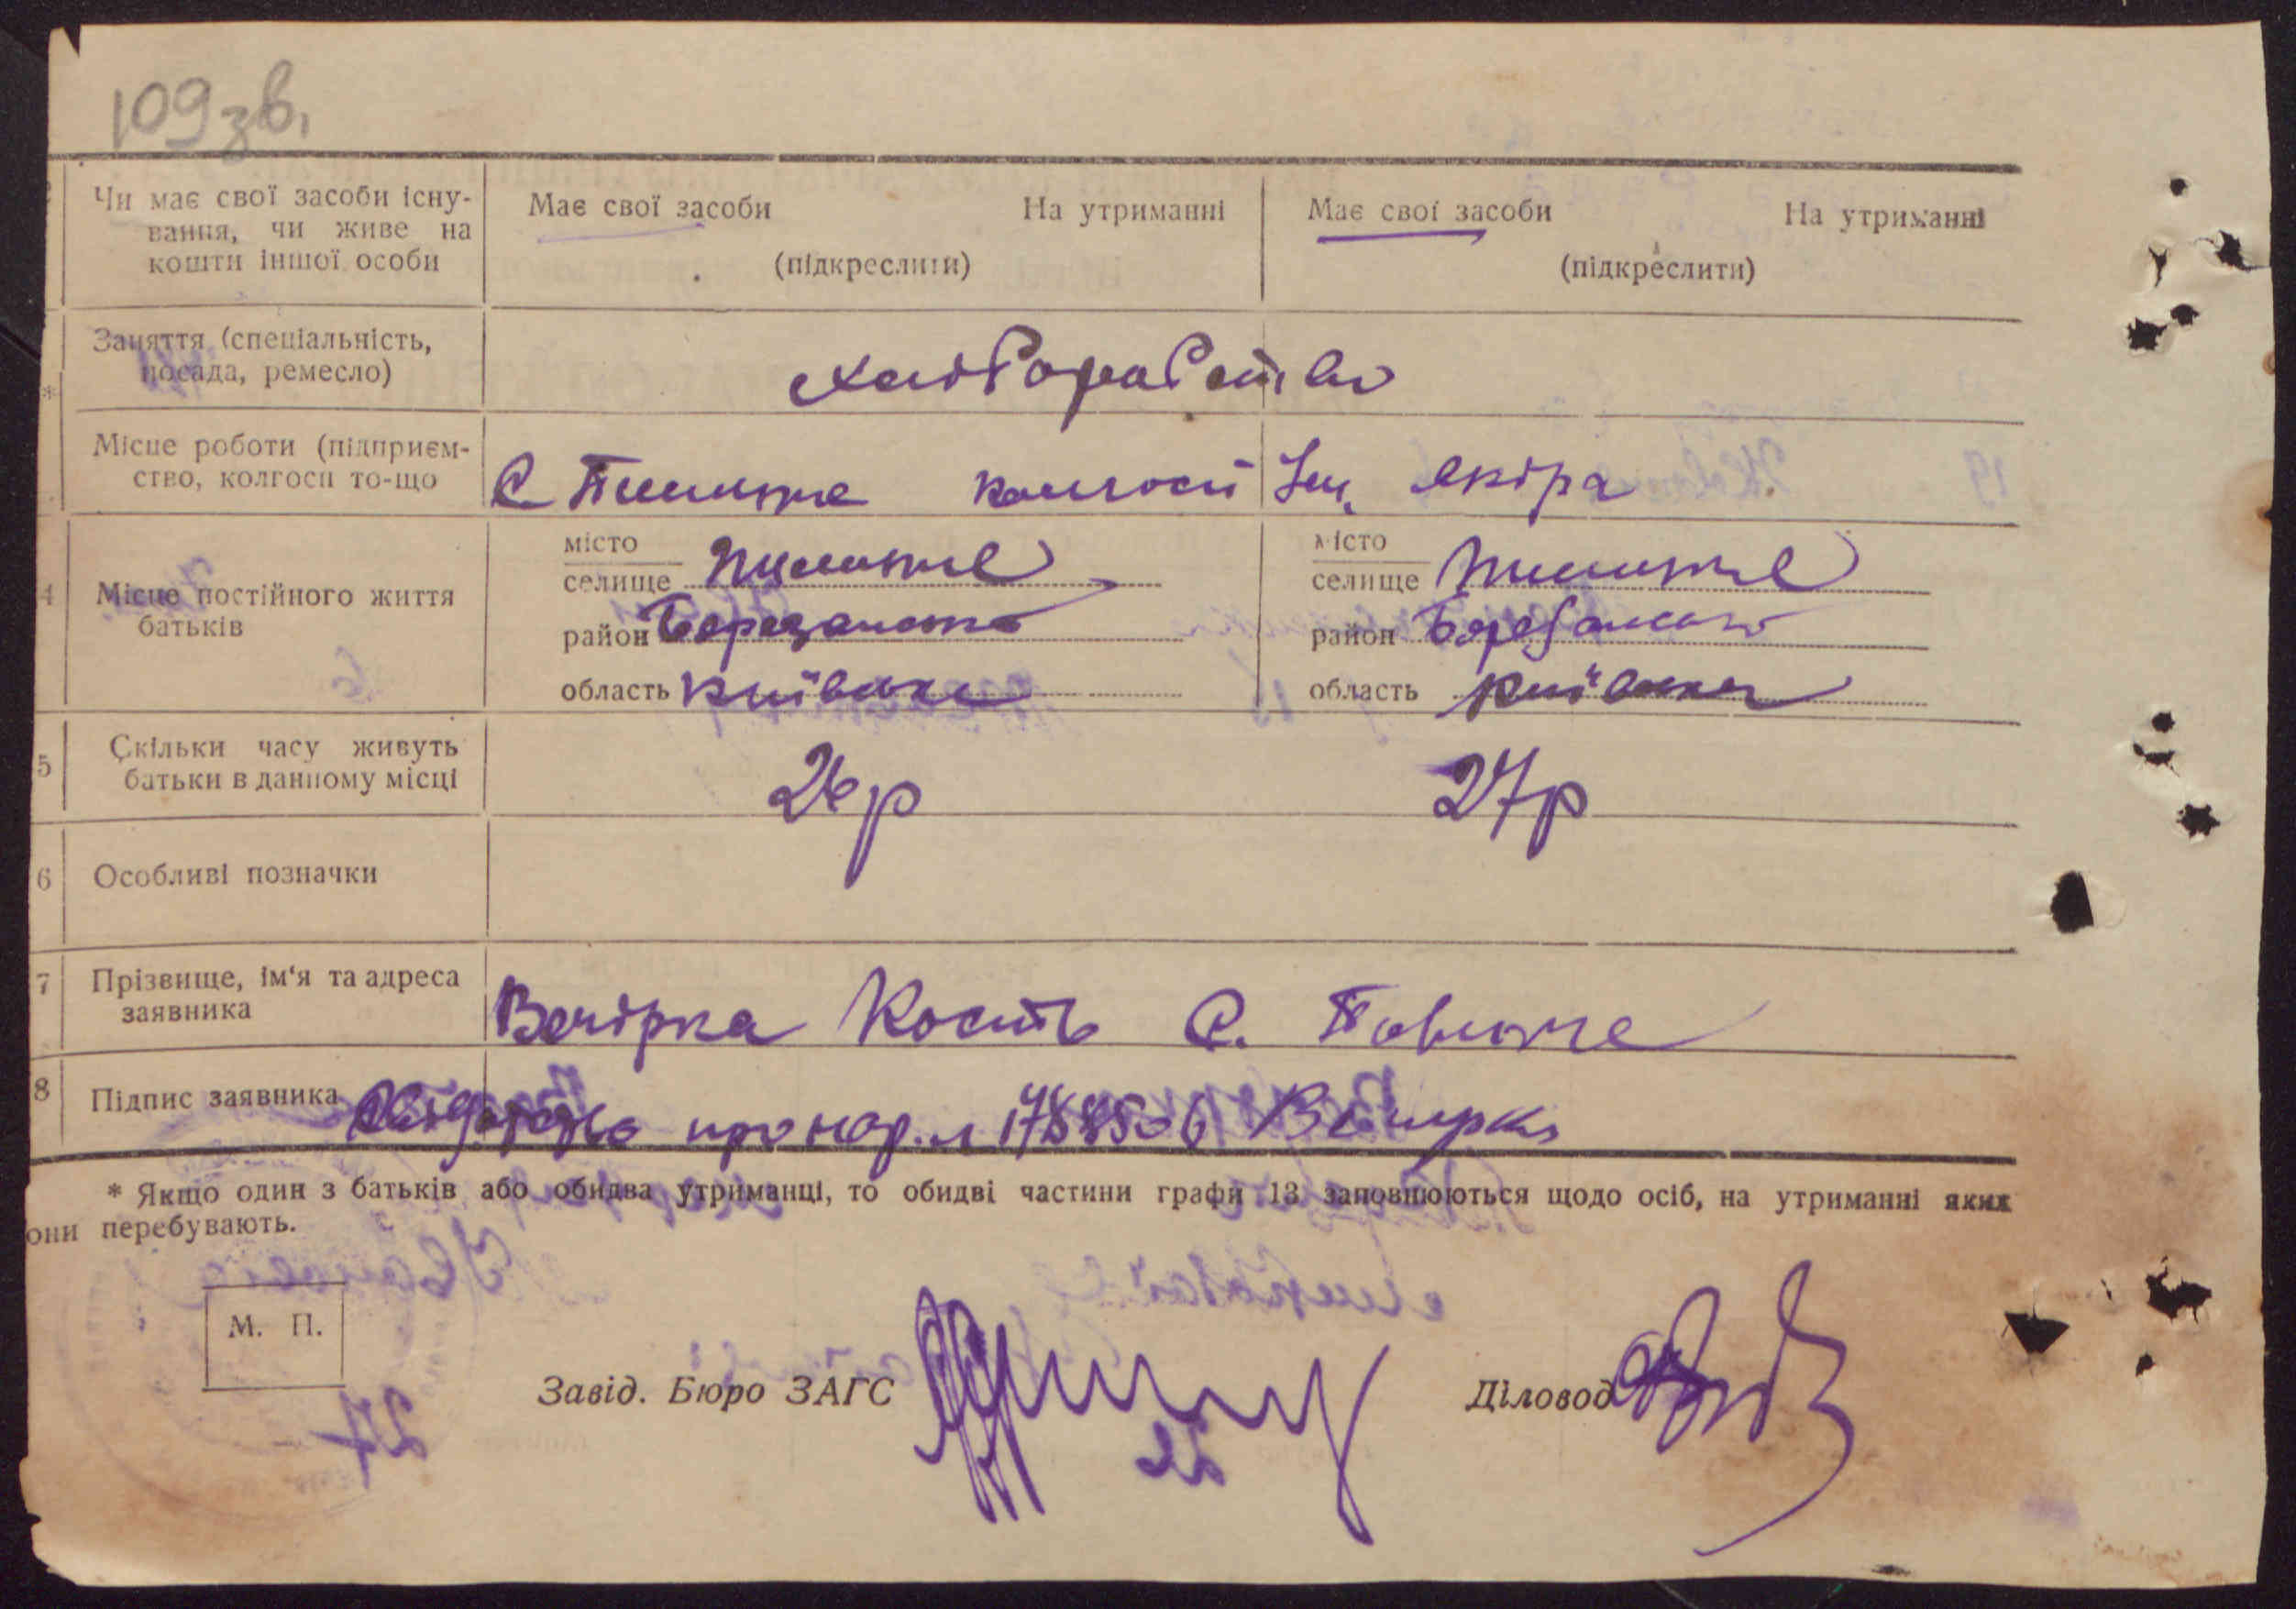 109 зв.
Чи має свої засоби існу-
вання, чи живе на
кошти іншої особи
Має свої засоби На утриманні
(підкреслити)
Має свої засоби На утриманні
(підкреслити)
Заняття (спеціальність,
посада, ремесло)
хліборобство
Місце роботи (підприєм-
ство, колгосп то-що
С колгосп Ім. Якіра
4 Місце постійного життя
батьків
місто
селище
район
область Київська
місто
селище
район
область Київська
5 Скільки часу живуть
батьки в данному місці
26р 27р
6 Особливі позначки
7 Прізвище, ім'я та адреса
заявника
Вечірка Кость С.
8 Підпис заявника
про нар. Вечірка
* Якщо один з батьків або обидва утриманці, то обидві частини графи 13 заповнюються щодо осіб, на утриманні яких
они перебувають.
М. П.
Завід. Бюро ЗАГС
Діловод